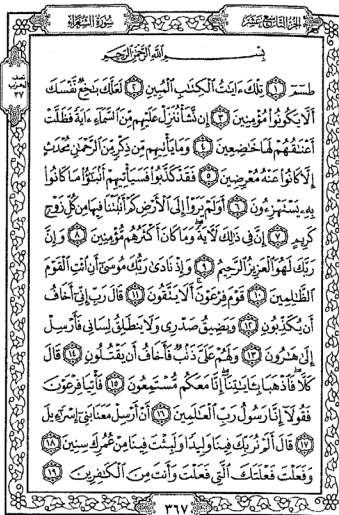 الجزء التاسع عشر
سورة الشعراء
نصف
الحزب
٣٧
بسم الله الرحمن الرحيم
طسٓمٓ ۝١ تِلْكَ ءَايَٰتُ ٱلْكِتَٰبِ ٱلْمُبِينِ ۝٢ لَعَلَّكَ بَٰخِعٌ نَّفْسَكَ
أَلَّا يَكُونُوا۟ مُؤْمِنِينَ ۝٣ إِن نَّشَأْ نُنَزِّلْ عَلَيْهِم مِّنَ ٱلسَّمَآءِ ءَايَةً فَظَلَّتْ
أَعْنَٰقُهُمْ لَهَا خَٰضِعِينَ ۝٤ وَمَا يَأْتِيهِم مِّن ذِكْرٍ مِّنَ ٱلرَّحْمَٰنِ مُحْدَثٍ
إِلَّا كَانُوا۟ عَنْهُ مُعْرِضِينَ ۝٥ فَقَدْ كَذَّبُوا۟ فَسَيَأْتِيهِمْ أَنۢبَٰٓؤُا۟ مَا كَانُوا۟
بِهِۦ يَسْتَهْزِءُونَ ۝٦ أَوَلَمْ يَرَوْا۟ إِلَى ٱلْأَرْضِ كَمْ أَنۢبَتْنَا فِيهَا مِن كُلِّ زَوْجٍ
كَرِيمٍ ۝٧ إِنَّ فِى ذَٰلِكَ لَءَايَةً وَمَا كَانَ أَكْثَرُهُم مُّؤْمِنِينَ ۝٨ وَإِنَّ
رَبَّكَ لَهُوَ ٱلْعَزِيزُ ٱلرَّحِيمُ ۝٩ وَإِذْ نَادَىٰ رَبُّكَ مُوسَىٰٓ أَنِ ٱئْتِ ٱلْقَوْمَ
ٱلظَّٰلِمِينَ ۝١٠ قَوْمَ فِرْعَوْنَ أَلَا يَتَّقُونَ ۝١١ قَالَ رَبِّ إِنِّىٓ أَخَافُ
أَن يُكَذِّبُونِ ۝١٢ وَيَضِيقُ صَدْرِى وَلَا يَنطَلِقُ لِسَانِى فَأَرْسِلْ
إِلَىٰ هَٰرُونَ ۝١٣ وَلَهُمْ عَلَىَّ ذَنۢبٌ فَأَخَافُ أَن يَقْتُلُونِ ۝١٤ قَالَ
كَلَّا فَٱذْهَبَا بِـَٔايَٰتِنَآ إِنَّا مَعَكُم مُّسْتَمِعُونَ ۝١٥ فَأْتِيَا فِرْعَوْنَ
فَقُولَآ إِنَّا رَسُولُ رَبِّ ٱلْعَٰلَمِينَ ۝١٦ أَنْ أَرْسِلْ مَعَنَا بَنِىٓ إِسْرَٰٓءِيلَ
۝١٧ قَالَ أَلَمْ نُرَبِّكَ فِينَا وَلِيدًا وَلَبِثْتَ فِينَا مِنْ عُمُرِكَ سِنِينَ ۝١٨
وَفَعَلْتَ فَعْلَتَكَ ٱلَّتِى فَعَلْتَ وَأَنتَ مِنَ ٱلْكَٰفِرِينَ ۝١٩
٣٦٧